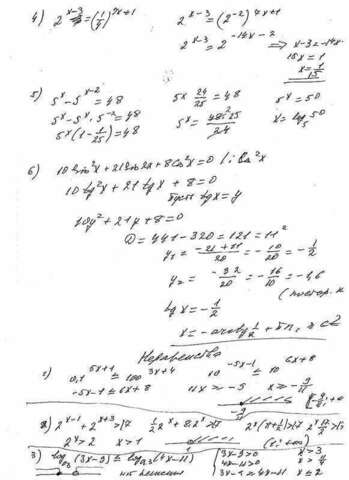 4) 2^{x-3} = (1/4)^{7x+1}
2^{x-3} = (2^{-2})^{7x+1}
2^{x-3} = 2^{-14x-2} => x-3 = -14x
15x = 1
x = 1/15
5) 5^x - 5^{x-2} = 48
5^x - 5^x · 5^{-2} = 48
5^x (1 - 1/25) = 48
5x 24/25 = 48
5^x = 48·25/24
5^x = 50
x = log_5 50
6) 10 sin²x + 21 sin2x + 8 cos²x = 0 | : cos²x
10 tg²x + 21 tgx + 8 = 0
Пусть tgx = y
10y² + 21y + 8 = 0
D = 441 - 320 = 121 = 11²
y₁ = (-21+11)/20 = -10/20 = -1/2
y₂ = -32/20 = -16/10 = -1,6
tgx = -1/2
x = -arctg 1/2 + πn, n ∈ Z
Неравенства
0,1^{5x+1} ≤ 100^{3x+4}
10^{-5x-1} ≤ 10^{6x+8}
-5x-1 ≤ 6x+8
11x ≥ -9
x ≥ -9/11
2) 2^{x-1} + 2^{x+3} > 17
1/2 2^x + 8·2^x > 17
2^x (8+1/2) > 17
2^x > 2
x > 1
(1; +∞)
3) log_{0,3} (3x-9) ≤ log_{0,3} (4x-11)
3x-9 > 0
x > 3
4x-11 > 0
3x-9 ≥ 4x-11
x ≤ 2
нет решений